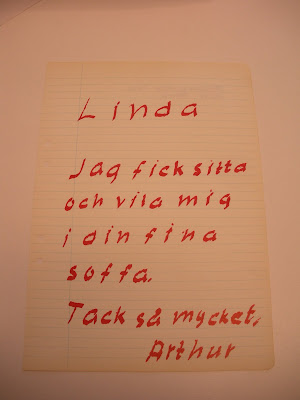 Linda
Jag fick sitta
och vila mig
i din fina
soffa.
Tack så mycket,
Arthur